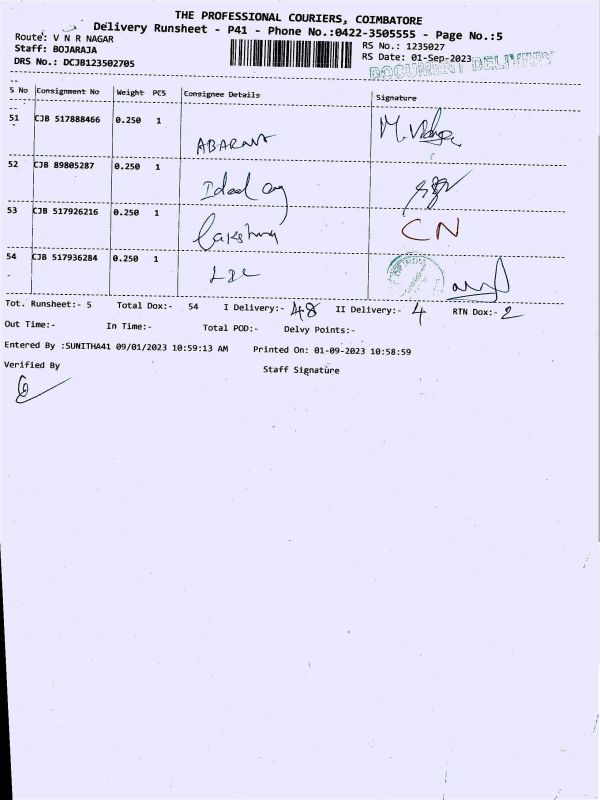 THE PROFESSIONAL COURIERS, COIMBATORE
Delivery Runsheet - P41 - Phone No.:0422-3505555 - Page No.:5
Route: V N R NAGAR
RS No.: 1235027
Staff: BOJARAJA
RS Date: 01-Sep-2023
DRS No.: DCJB123502705
DOCUMENT DELIVERY
S No Consignment No Weight PCS Consignee Details Signature
51 CJB 517888466 0.250 1
52 CJB 89805287 0.250 1
53 CJB 517926216 0.250 1
CN
54 CJB 517936284 0.250 1
Tot. Runsheet:- 5 Total Dox:- 54 I Delivery:- 48 II Delivery:- 4 RTN Dox:- 2
Out Time:- In Time:- Total POD:- Delvy Points:-
Entered By :SUNITHA41 09/01/2023 10:59:13 AM Printed On: 01-09-2023 10:58:59
Verified By Staff Signature